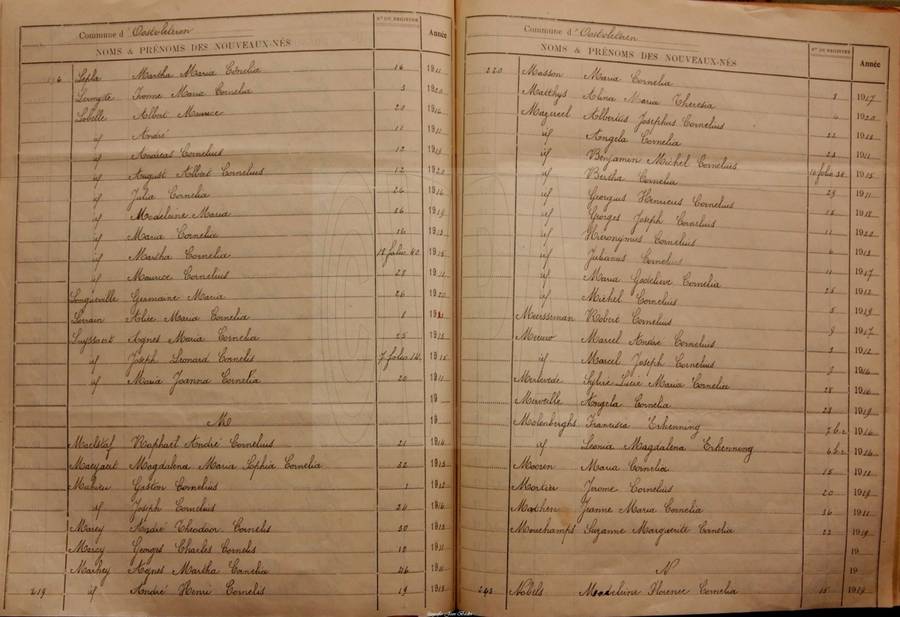 Commune d' Oostvleteren
NOMS & PRÉNOMS DES NOUVEAUX-NÉS
N° DU REGISTRE
Année
Lepla Martha Maria Cornelia 16 1911
Lermyte Ivonne Maria Cornelia 3 1920
Lobelle Albert Maurice 20 1914
if André 11 1911
if Andreas Cornelius 12
if August Albert Cornelius 12 1920
if Julia Cornelia 26 1914
if Madeleine Maria 26 1919
if Maria Cornelia 16 1912
if Martha Cornelia 18 folio 40 1915
if Maurice Cornelius 28 1911
Longueville Germaine Maria 26 1920
Lorrain Alice Maria Cornelia 8
Luyssaert Agnes Maria Cornelia 25
if Joseph Leonard Cornelis 7 folio 1915
if Maria Joanna Cornelia 20 1911
19
M 19
Maelstaf Raphaël André Cornelius 21 1914
Maeyaert Magdalena Maria Sophia Cornelia 22 1913
Gaston Cornelius 1 1912
if Joseph Cornelius 24 1914
Marey André Theodoor Cornelis 20 1913
Marey Georges Charles Cornelis 12 1911
Marhey Agnes Martha Cornelia 26 1911
219 if André Henri Cornelis 19 1913
Commune d' Oostvleteren
NOMS & PRÉNOMS DES NOUVEAUX-NÉS
N° DU REGISTRE
Année
220 Masson Maria Cornelia 8 1917
Matthys Alina Maria Theresia 1920
Mazereel Albertus Josephus Cornelius 22
if Angela Cornelia 1911
if Benjamin Michel Cornelius 1915
if Bertha Cornelia 1911
if Georgius Henricus Cornelius 1912
if Georges Joseph Cornelius 11
if Hieronymus Cornelius 6 1913
if Julianus Cornelius 11 1917
if Maria Godelieve Cornelia 25 1912
if Michel Cornelius 5 1919
Meersseman Robert Cornelius 9 1917
Meeuw Marcel André Cornelius 3 1912
if Marcel Joseph Cornelius 9 1916
Merlevede Sylvie Lucie Maria Cornelia 28 1916
Merveille Angela Cornelia 28 1919
Molenberghs Francisca Erkenning 1914
if Leonia Magdalena Erkenning 1914
Mooren Maria Cornelia 15 1912
Mortier Jerome Cornelius 20 1919
Mothen Jeanne Maria Cornelia 16 1911
Mouchamps Suzanne Marguerite Cornelia 22 1919
19
N 19
Nobels Madeleine Florence Cornelia 15 1919